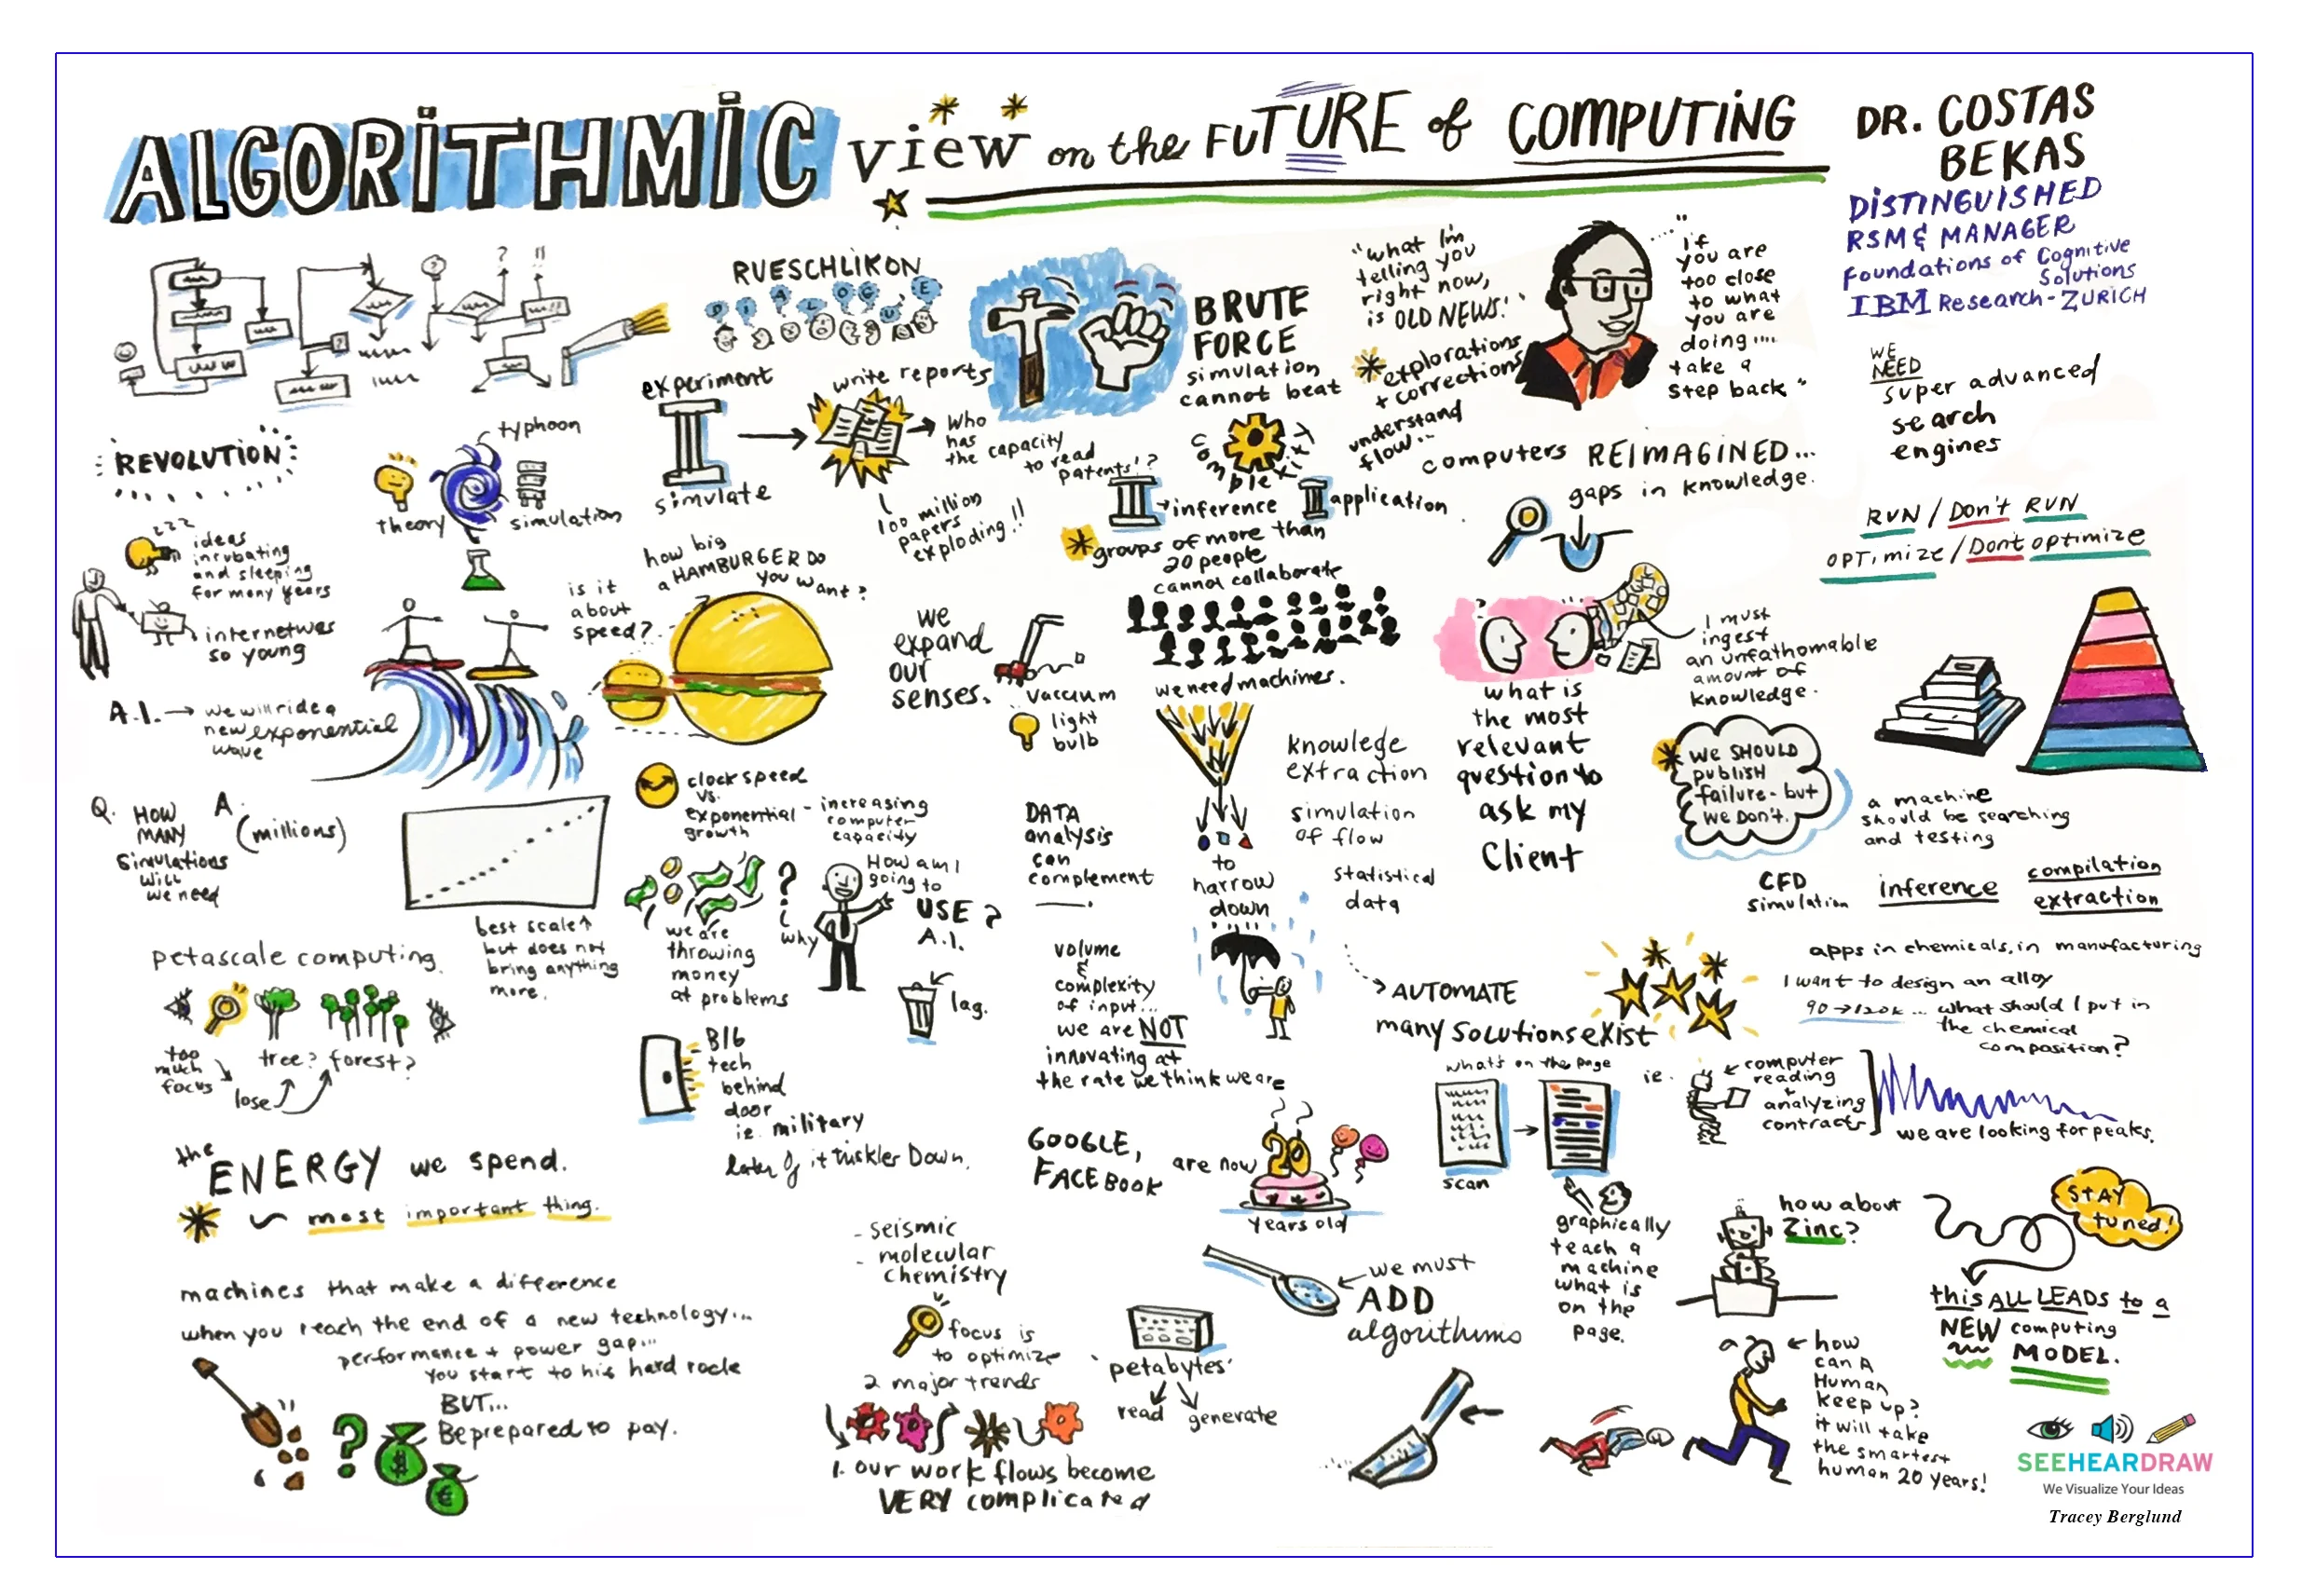 ALGORITHMIC view on the FUTURE of COMPUTING
DR. COSTAS
BEKAS
DISTINGUISHED
RSM & MANAGER
Foundations of Cognitive
Solutions
IBM Research - ZURICH
RUESCHLIKON
DIALOGUE
BRUTE
FORCE
simulation
cannot beat
complexity
"what I'm
telling you
right now,
is OLD NEWS!"
explorations
+ corrections
understand
flow...
"if
you are
too close
to what
you are
doing....
take a
step back"
WE
NEED
super advanced
search
engines
REVOLUTION
typhoon
theory
simulation
experiment
simulate
write reports
Who
has
the capacity
to read
patents!?
100 million
papers
exploding!!
inference
application
computers REIMAGINED...
gaps in knowledge.
RUN / Don't RUN
OPTimize / Don't optimize
zzz
ideas
incubating
and sleeping
for many years
internet was
so young
A.I. → we will ride a
new exponential
wave
is it
about
speed?
how big
a HAMBURGER DO
you want?
groups of more than
20 people
cannot collaborate
we need machines.
we
expand
our
senses.
vaccium
light
bulb
I must
ingest
an unfathomable
amount of
knowledge.
what is
the most
relevant
question to
ask my
Client
We SHOULD
publish
failure - but
we DON'T.
a machine
should be searching
and testing
Q. HOW
MANY
Simulations
will
we need
A.
(millions)
best scale↑
but does not
bring anything
more.
clock speed
vs.
exponential
growth
- increasing
computer
capacity
we are
throwing
money
at problems
?
why
How am I
going to
USE ?
A.I.
lag.
DATA
analysis
can
complement
to
narrow
down
knowlege
extraction
simulation
of flow
statistical
data
CFD
simulation
inference
compilation
extraction
petascale computing
too
much
focus
tree?
forest?
lose
BIG
tech
behind
door
ie. military
later it trickles Down.
volume
&
complexity
of input...
we are NOT
innovating at
the rate we think we are
AUTOMATE
many solutions exist
apps in chemicals, in manufacturing
I want to design an alloy
90→120k ... what should I put in
the chemical
composition?
what's on the page
scan
ie.
computer
reading
+
analyzing
contracts
we are looking for peaks.
the ENERGY we spend.
most important thing.
GOOGLE,
FACEBOOK
are now
20
years old
graphically
teach a
machine
what is
on the
page.
how about
Zinc?
STAY
tuned!
this ALL LEADS to a
NEW computing
MODEL.
machines that make a difference
when you reach the end of a new technology...
performance + power gap...
you start to his hard rock
BUT...
Be prepared to pay.
?
$
€
- seismic
- molecular
chemistry
focus is
to optimize
2 major trends
1. our work flows become
VERY complicated
'petabytes'
read
generate
we must
ADD
algorithms
how
can A
Human
keep up?
it will take
the smartest
human 20 years!
SEEHEARDRAW
We Visualize Your Ideas
Tracey Berglund